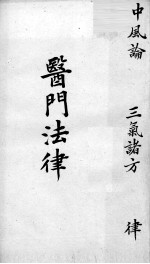 中風論　三氣諸方　律
醫門法律